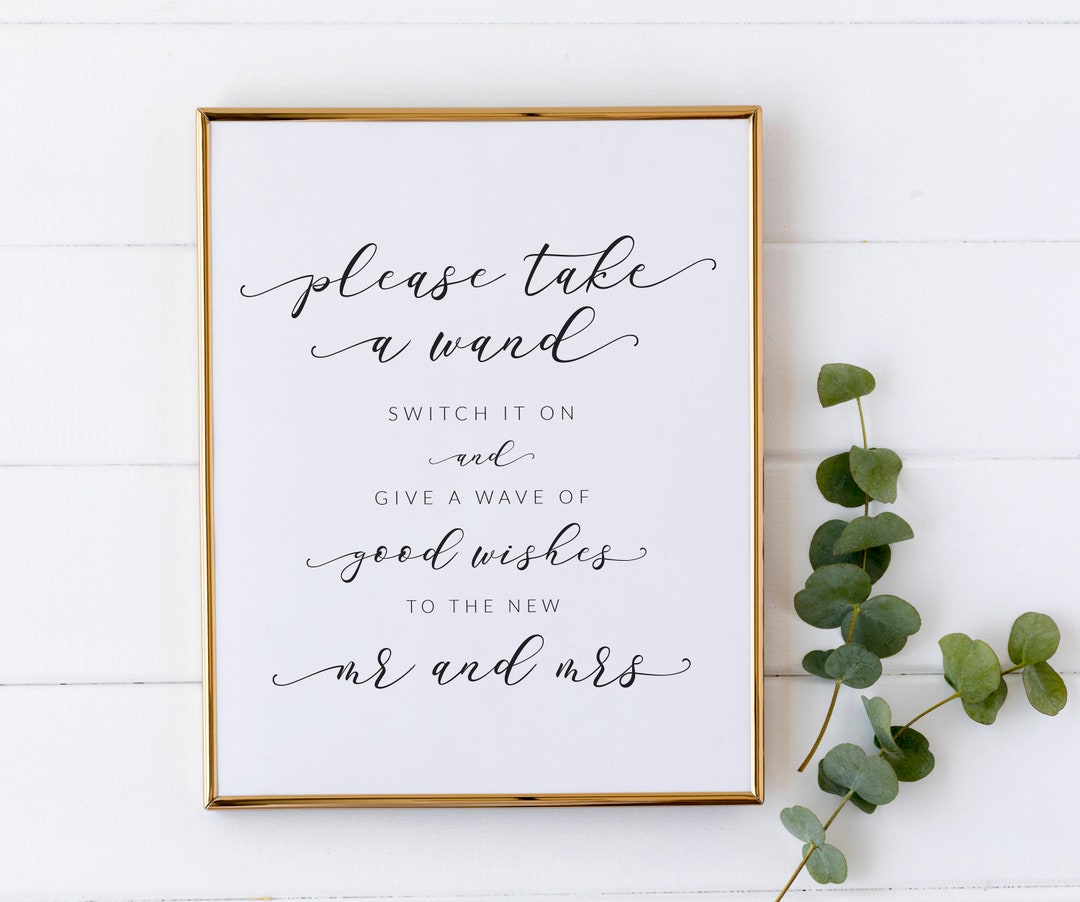 please take
a wand
SWITCH IT ON
and
GIVE A WAVE OF
good wishes
TO THE NEW
mr and mrs